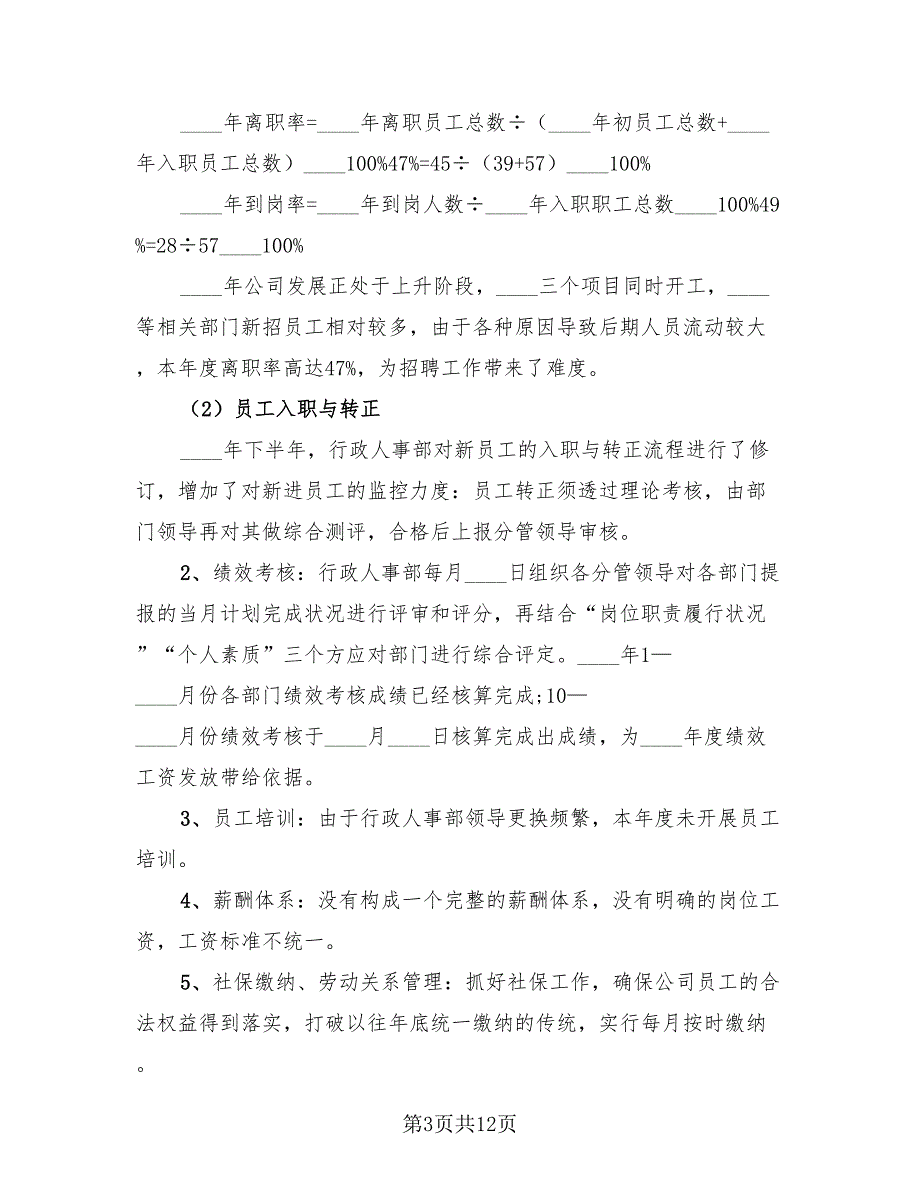 ____年离职率=____年离职员工总数÷（____年初员工总数+____
年入职员工总数）____100%47%=45÷（39+57）____100%
____年到岗率=____年到岗人数÷____年入职职工总数____100%49
%=28÷57____100%
____年公司发展正处于上升阶段，____三个项目同时开工，____
等相关部门新招员工相对较多，由于各种原因导致后期人员流动较大
，本年度离职率高达47%，为招聘工作带来了难度。
（2）员工入职与转正
____年下半年，行政人事部对新员工的入职与转正流程进行了修
订，增加了对新进员工的监控力度：员工转正须透过理论考核，由部
门领导再对其做综合测评，合格后上报分管领导审核。
2、绩效考核：行政人事部每月____日组织各分管领导对各部门提
报的当月计划完成状况进行评审和评分，再结合“岗位职责履行状况
”“个人素质”三个方应对部门进行综合评定。____年1—
____月份各部门绩效考核成绩已经核算完成;10—
____月份绩效考核于____月____日核算完成出成绩，为____年度绩效
工资发放带给依据。
3、员工培训：由于行政人事部领导更换频繁，本年度未开展员工
培训。
4、薪酬体系：没有构成一个完整的薪酬体系，没有明确的岗位工
资，工资标准不统一。
5、社保缴纳、劳动关系管理：抓好社保工作，确保公司员工的合
法权益得到落实，打破以往年底统一缴纳的传统，实行每月按时缴纳
。
第3页共12页